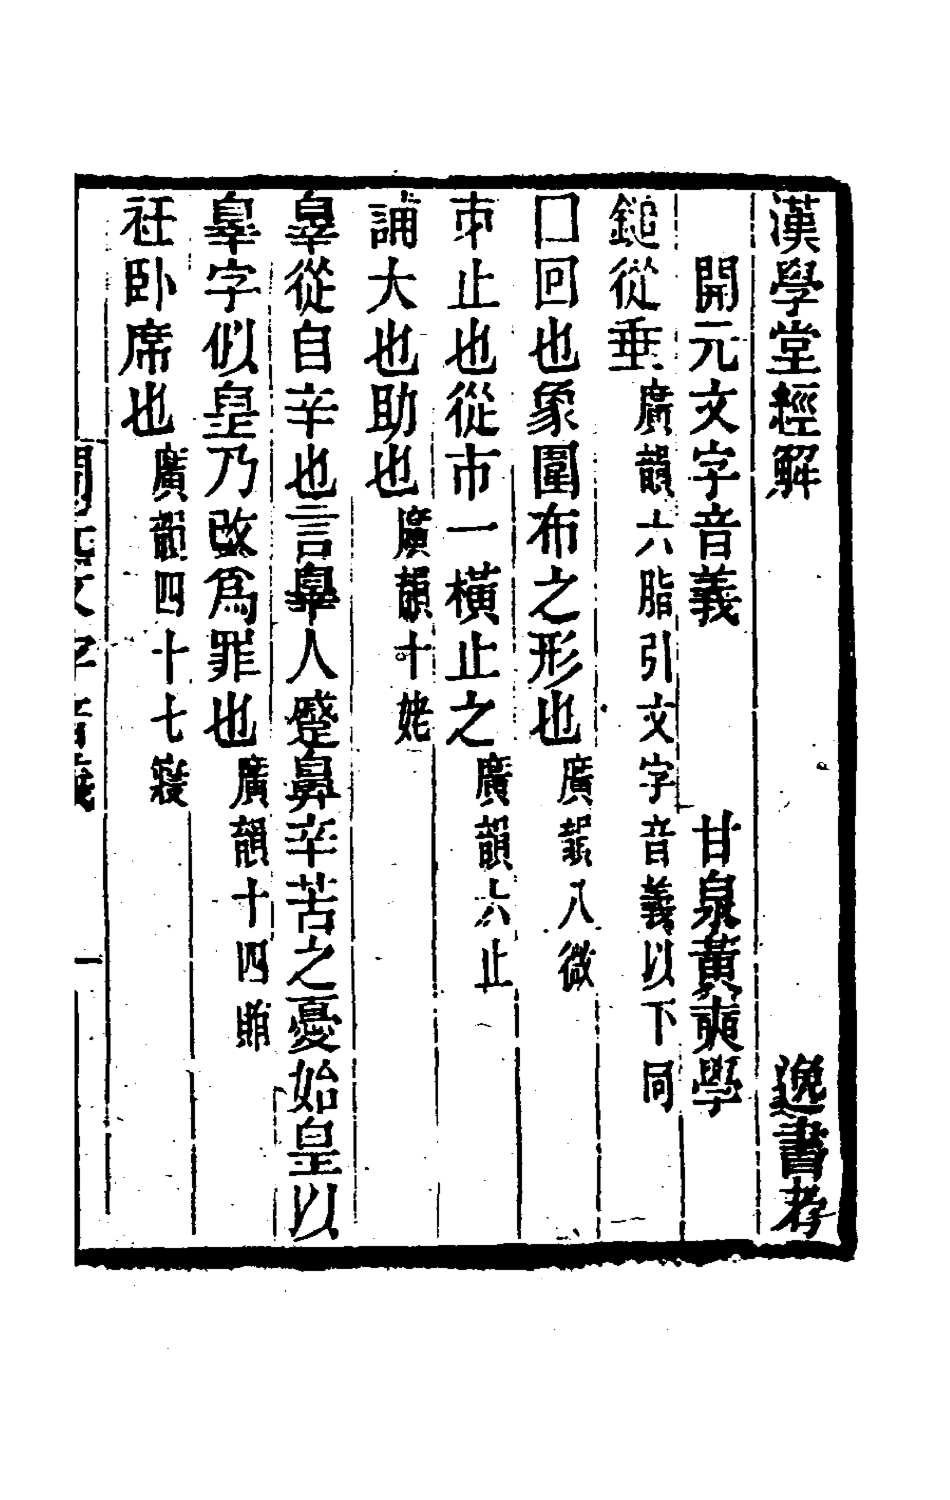 漢學堂經解 逸書考
開元文字音義 甘泉黃奭學
鎚從垂廣韻六脂引文字音義以下同
囗回也象圍布之形也廣韻八微
𠂔止也從巿一橫止之廣韻六止
誧大也助也廣韻十姥
辠從自辛也言辠人蹙鼻辛苦之憂始皇以
辠字似皇乃改為罪也廣韻十四賄
衽臥席也廣韻四十七寑
開元文字音義 一